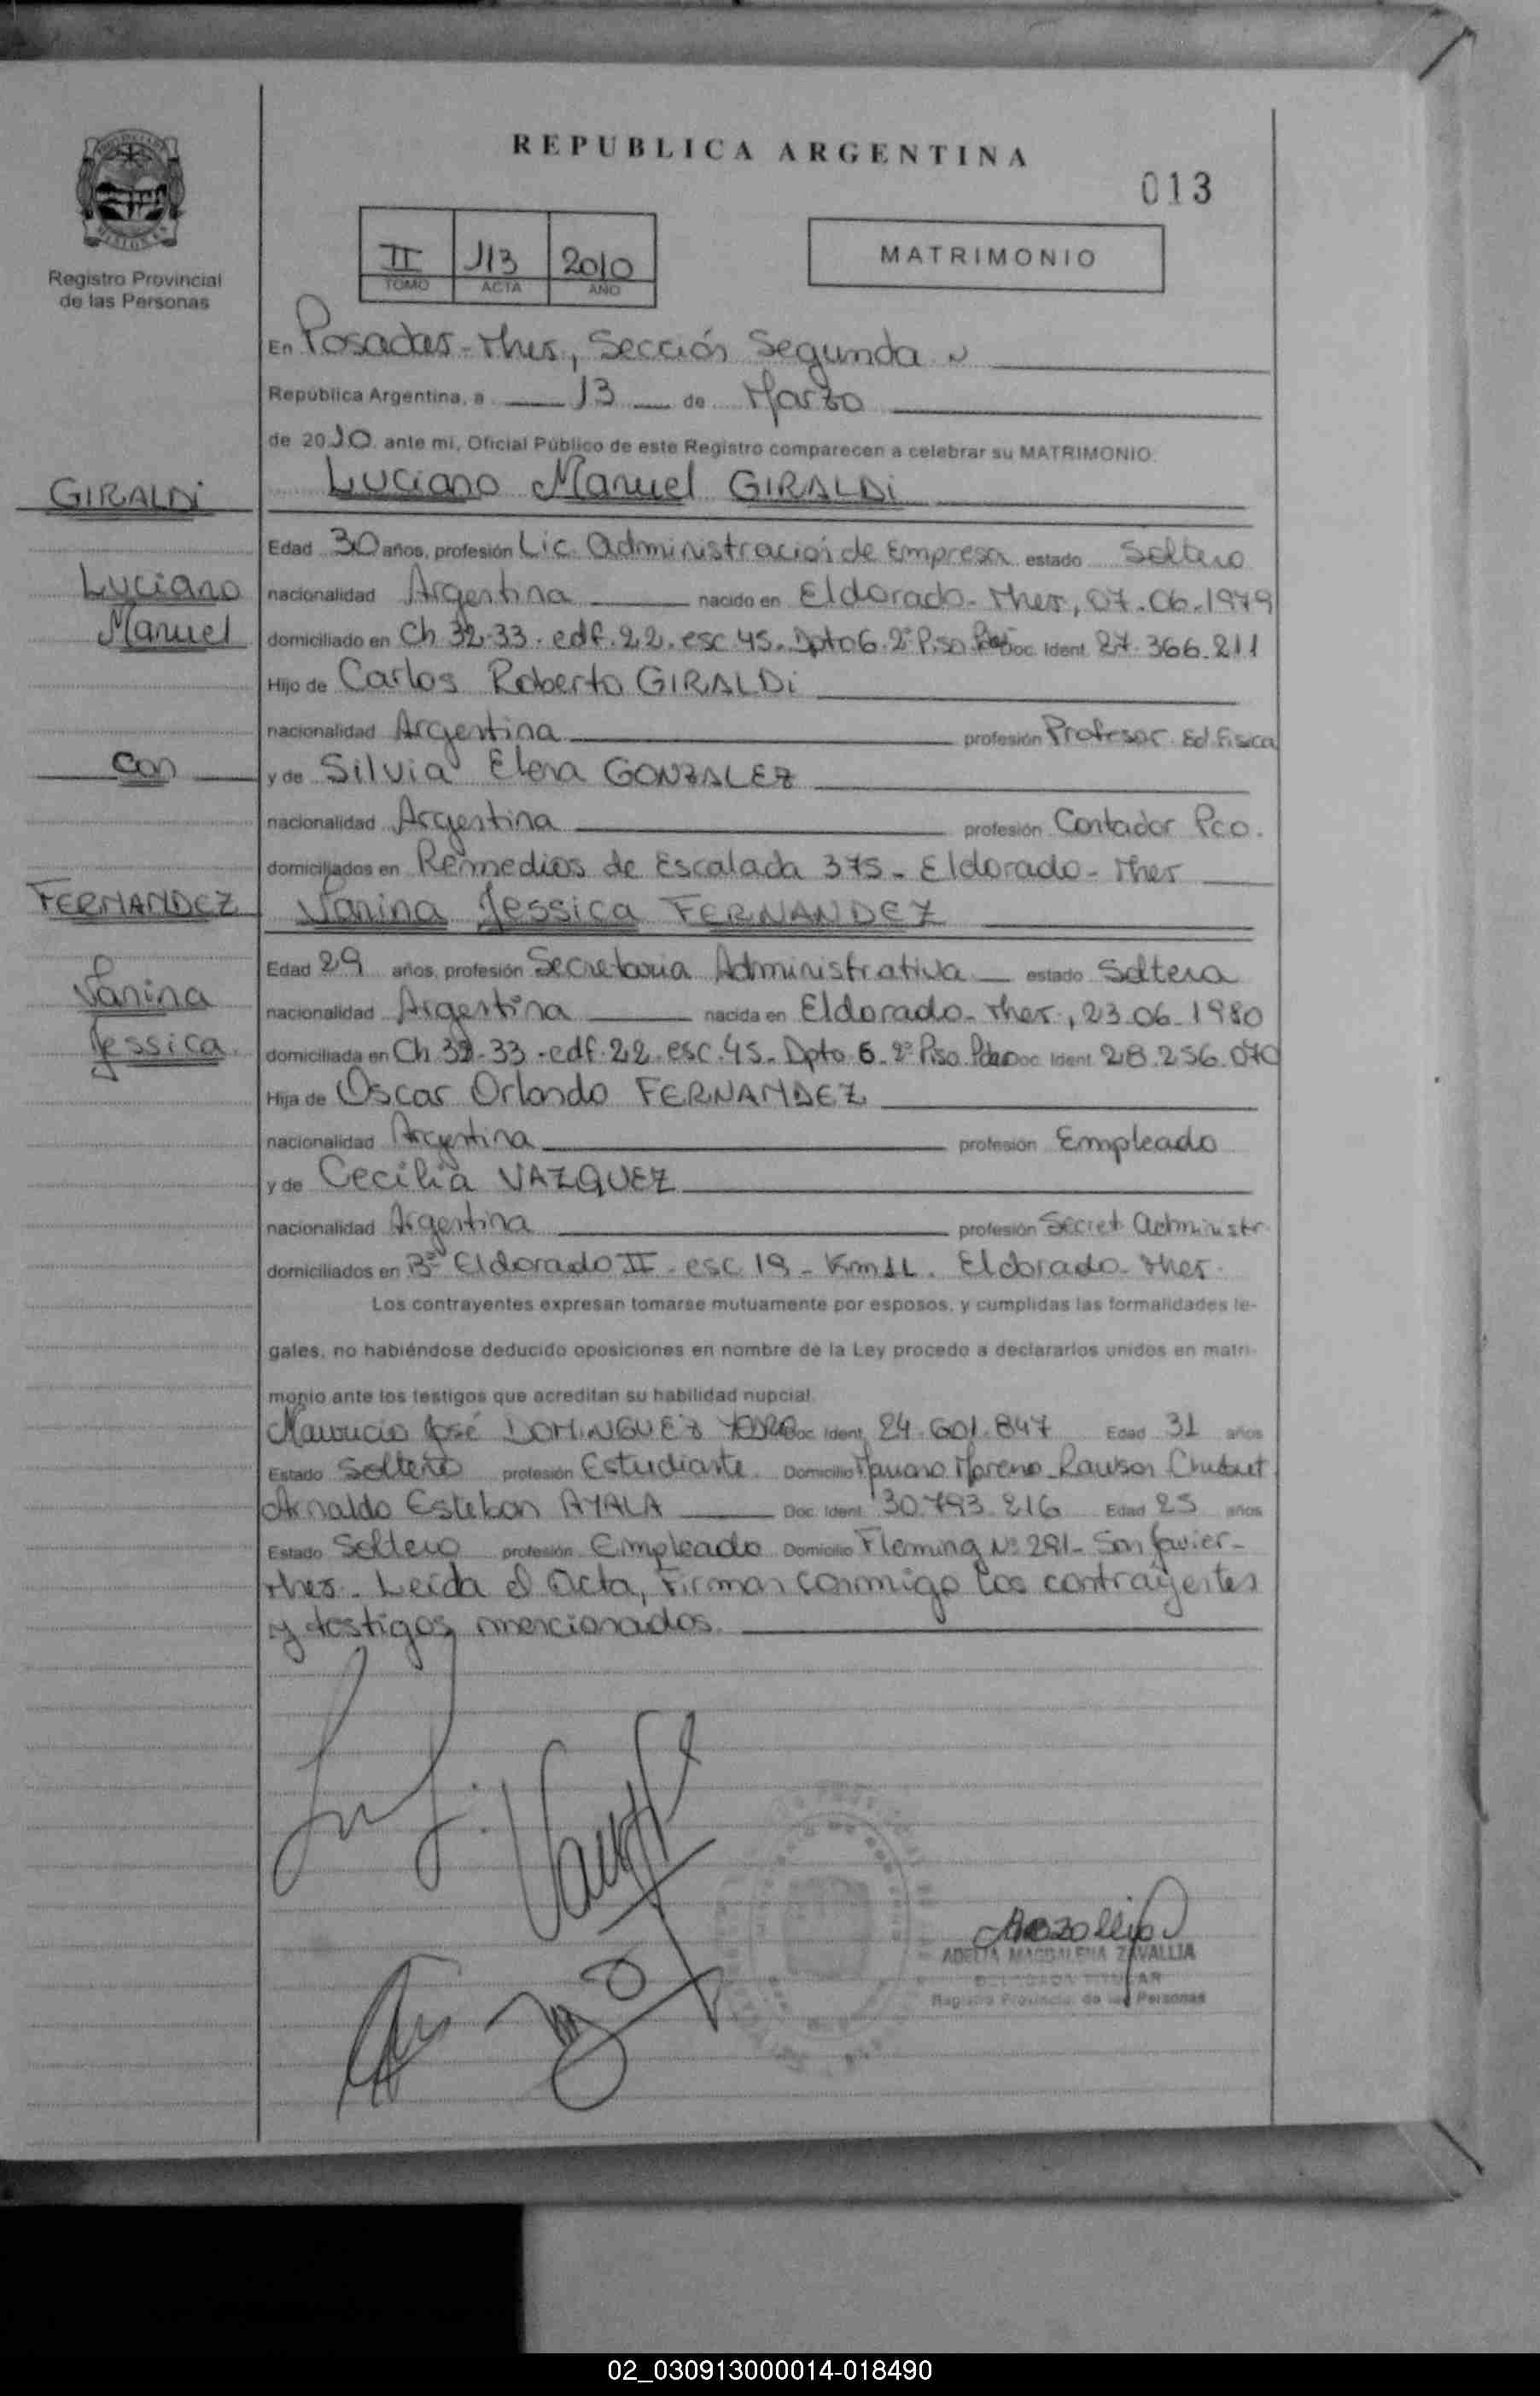 REPUBLICA ARGENTINA
013
Registro Provincial
de las Personas
II 113 2010
TOMO ACTA AÑO
MATRIMONIO
En Posadas - Mnes, Sección Segunda
República Argentina, a 13 de Marzo
de 2010 ante mi, Oficial Público de este Registro comparecen a celebrar su MATRIMONIO
GIRALDi
Luciano Manuel GIRALDi
Edad 30 años, profesión Lic. Administración de Empresa estado Soltero
Luciano
nacionalidad Argentina nacido en Eldorado - Mnes, 07.06.1979
Manuel
domiciliado en Ch 32-33. edf. 22. esc. 45. Dpto 6. 2º Piso Doc. Ident. 27.366.211
Hijo de Carlos Roberto GIRALDi
nacionalidad Argentina profesión Profesor Ed. Fisica
con
y de Silvia Elena GONZALEZ
nacionalidad Argentina profesión Contador Pco.
domiciliados en Remedios de Escalada 375 - Eldorado - Mnes
FERNANDEZ
Vanina Jessica FERNANDEZ
Edad 29 años, profesión Secretaria Administrativa estado Soltera
Vanina
nacionalidad Argentina nacida en Eldorado - Mnes, 23.06.1980
Jessica
domiciliada en Ch 32-33 - edf. 22. esc. 45. Dpto 6. 2º Piso Doc. Ident. 28.256.070
Hija de Oscar Orlando FERNANDEZ
nacionalidad Argentina profesión Empleado
y de Cecilia VAZQUEZ
nacionalidad Argentina profesión Secret. Administr.
domiciliados en Bº Eldorado II - esc 19 - Km 11. Eldorado - Mnes.
Los contrayentes expresan tomarse mutuamente por esposos, y cumplidas las formalidades le-
gales, no habiéndose deducido oposiciones en nombre de la Ley procedo a declararlos unidos en matri-
monio ante los testigos que acreditan su habilidad nupcial.
Mauricio José DOMiNGUEZ Doc. Ident. 24.601.847 Edad 31 años
Estado Soltero profesión Estudiante Domicilio Mariano Moreno - Rawson Chubut
Arnaldo Esteban AYALA Doc. Ident. 30.793.216 Edad 25 años
Estado Soltero profesión Empleado Domicilio Fleming Nº 291 - San Javier -
Mnes. Leída el Acta, Firman conmigo los contrayentes
y testigos mencionados.
ADELIA MAGDALENA ZAVALLIA
DELEGADA TITULAR
Registro Provincial de las Personas
02_030913000014-018490